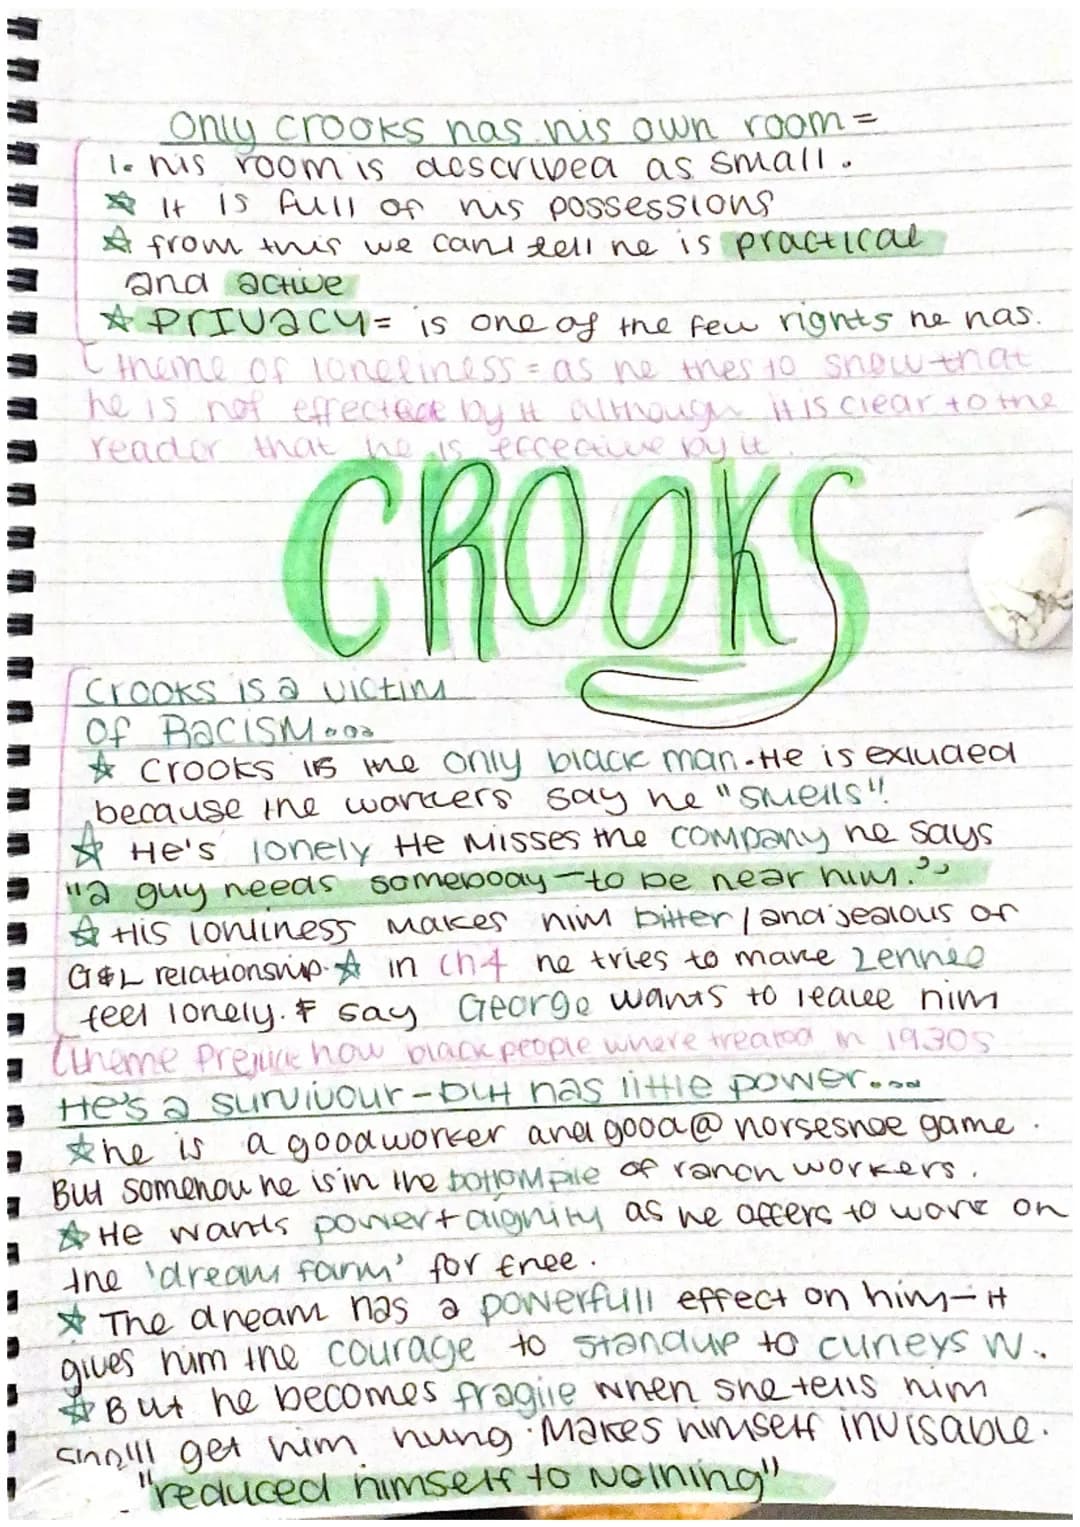 Only crooks has his own room =
1. his room is described as small.
☆ It is full of his possessions
☆ from this we can tell he is practical
and active
☆ PRIVACY = is one of the few rights he has.
theme of loneliness = as he tries to show that
he is not effected by it although it is clear to the
reader that he is effective by it.
CROOKS
Crooks is a victim
of Racism...
☆ Crooks is the only black man. He is exluded
because the workers say he "smells"!
☆ He's lonely He Misses the company he says
"a guy needs somebody - to be near him."
☆ His lonliness makes him bitter / and jealous of
G&L relationship. ☆ in Ch4 he tries to make Lennie
feel lonely. & say George wants to leave him
theme Prejuice how black people where treated in 1930s
He's a survivour - but has little power....
☆ he is a good worker and good @ horseshoe game.
But somehow he is in the bottom pile of ranch workers.
☆ He wants power + dignity as he offers to work on
the 'dream farm' for free.
☆ The dream has a powerfull effect on him - it
gives him the courage to standup to curleys W..
☆ But he becomes fragile when she tells him
she'll get him hung. Makes himself invisable.
"reduced himself to nothing"